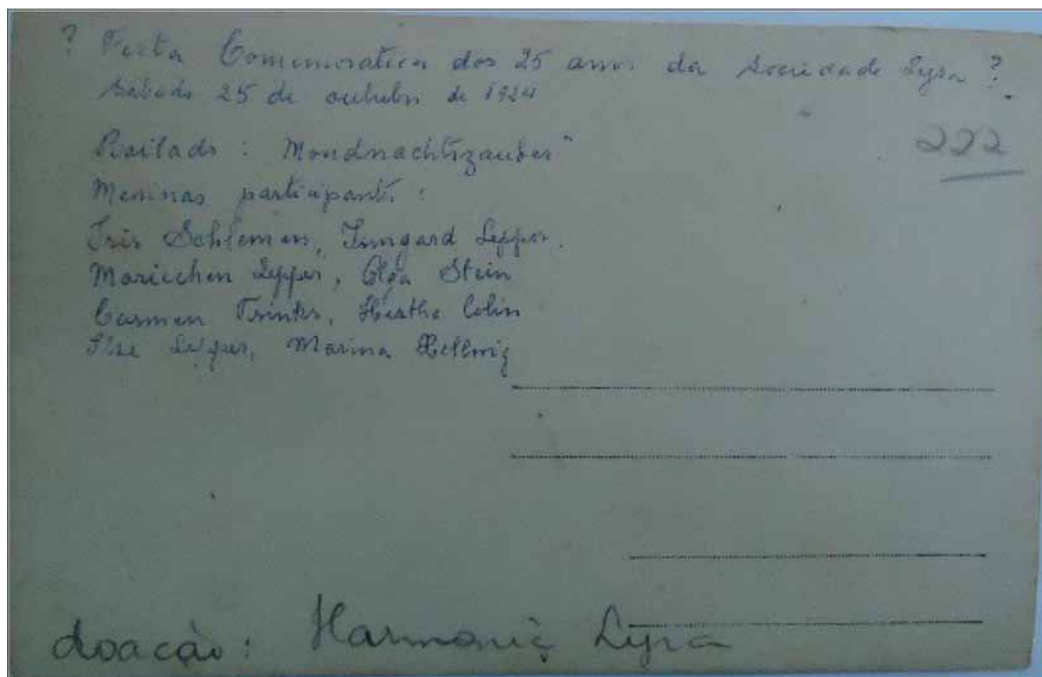 ? Festa Comemorativa dos 25 anos da Sociedade Lyra ?
Sabado 25 de outubro de 1924
222
Bailado: Mondnachtszauber"
Meninas participants:
Iris Schlemm, Irmgard Lepper,
Mariechen Lepper, Olga Stein
Carmen Trinks, Hertha Colin
Ilse Lepper, Marina Hellwig
doação: Harmonia Lyra